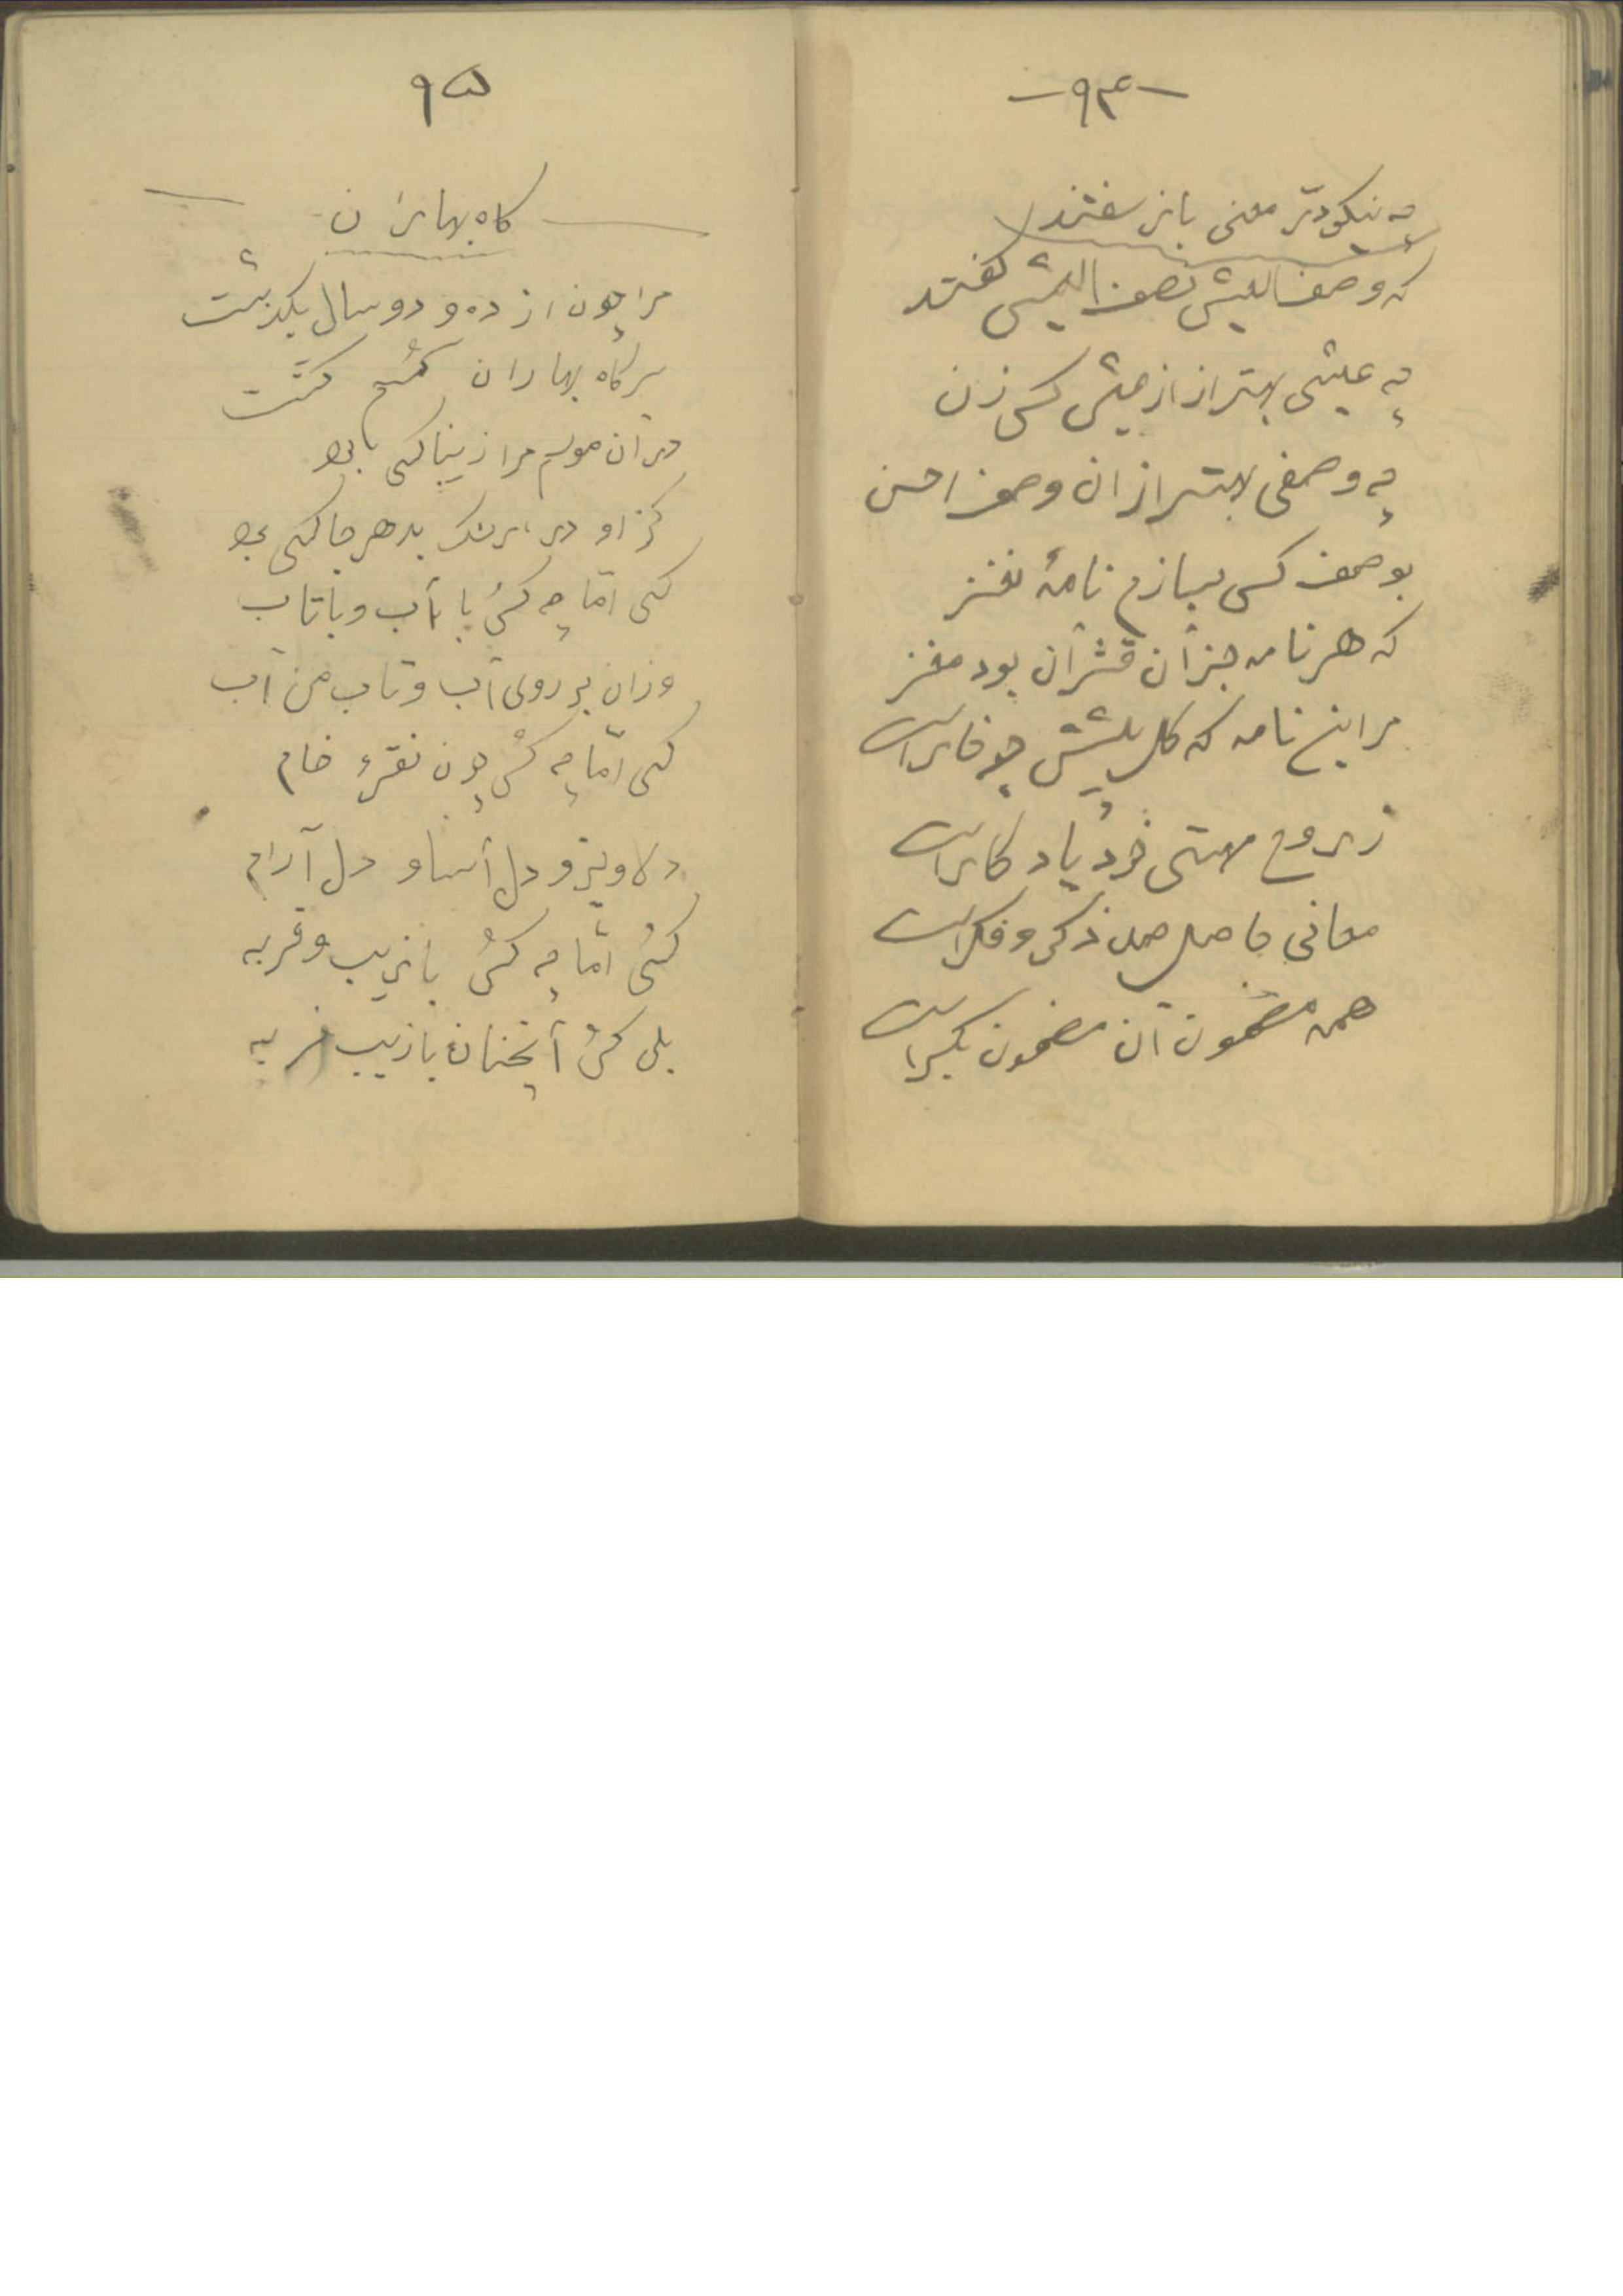 -۹۴-
چه نیکو درّ معنی باز سفتند
که وصف العیش نصف العیش گفتند
چه عیشی بهتر از از عیش کس زن
چه وصفی بهتر از ان وصف احسن
بوصف کس بسازم نامهٔ نغز
که هر نامه جز آن قشر آن بود مغز
مر این نامه که گل پیشش چو خار است
ز روح مهستی خود یادگار است
معانی حاصل صد ذکر و فکر است
همه مضمون آن مضمون بکر است
۹۵
گاه بهاران
مرا چون از ده و دو سال بگذشت
بر گاه بهاران کسم گشت
در آن موسم مرا زیبا کسی بود
کز او در هر جا کسی بود
کسی امّا چه کس با آب و با تاب
وزان بر روی آب و تاب من آب
کسی امّا چه کس چون نقرهٔ خام
دلاویز و دل آسا و دل آرام
کسی امّا چه کس با زیب و فربه
بلی کس آنچنان با زیب فربه